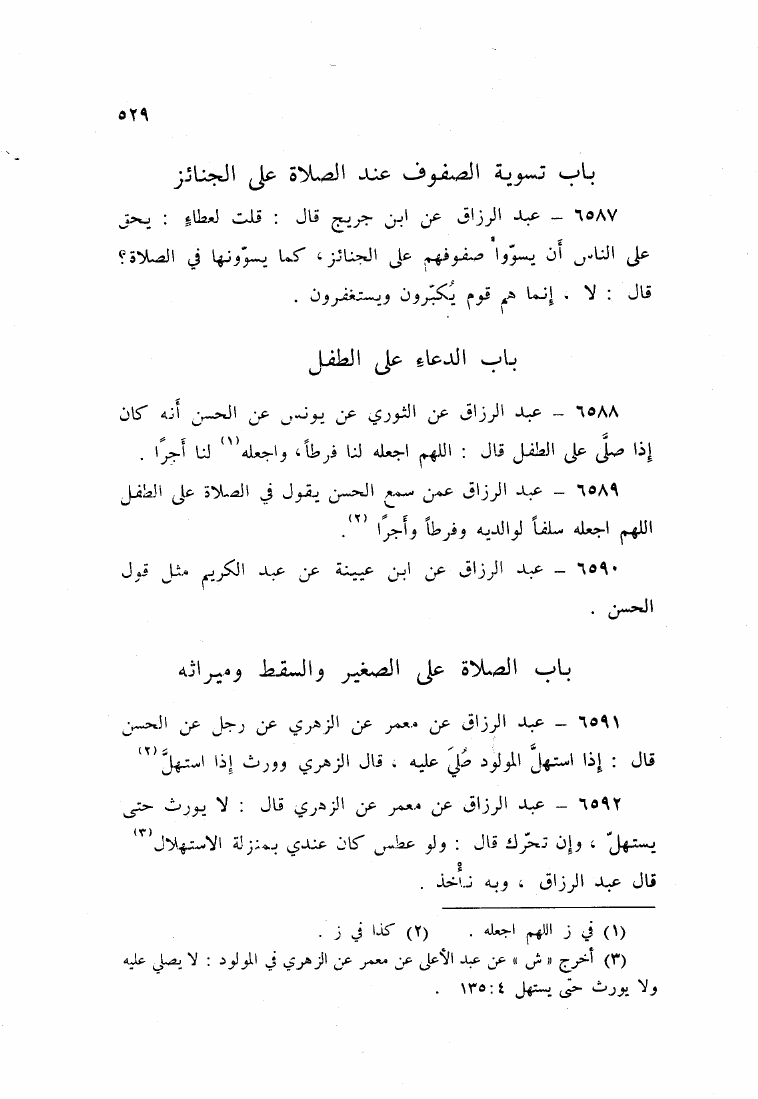 ٥٢٩
باب تسوية الصفوف عند الصلاة على الجنائز
٦٥٨٧ – عبد الرزاق عن ابن جريج قال : قلت لعطاءٍ : يحق
على الناس أَن يسوّوا صفوفهم على الجنائز ، كما يسوّونها في الصلاة ؟
قال : لا . إِنما هم قوم يُكبّرون ويستغفرون .
باب الدعاء على الطفل
٦٥٨٨ – عبد الرزاق عن الثوري عن يونس عن الحسن أَنه كان
إِذا صلَّى على الطفل قال : اللهم اجعله لنا فرطاً ، واجعله (١) لنا أَجرًا .
٦٥٨٩ – عبد الرزاق عمن سمع الحسن يقول في الصلاة على الطفل
اللهم اجعله سلفاً لوالديه وفرطاً وأَجرًا (٢) .
٦٥٩٠ – عبد الرزاق عن ابن عيينة عن عبد الكريم مثل قول
الحسن .
باب الصلاة على الصغير والسقط وميراثه
٦٥٩١ – عبد الرزاق عن معمر عن الزهري عن رجل عن الحسن
قال : إِذا استهلَّ المولود صُلِّيَ عليه ، قال الزهري وورث إِذا استهلَّ (٢)
٦٥٩٢ – عبد الرزاق عن معمر عن الزهري قال : لا يورث حتى
يستهلّ ، وإِن تحرّك قال : ولو عطس كان عندي بمنزلة الاستهلال (٣)
قال عبد الرزاق ، وبه نأْخذ .
(١) في ز اللهم اجعله . (٢) كذا في ز .
(٣) أخرج « ش » عن عبد الأعلى عن معمر عن الزهري في المولود : لا يصلي عليه
ولا يورث حتى يستهل ٤ : ١٣٥ .